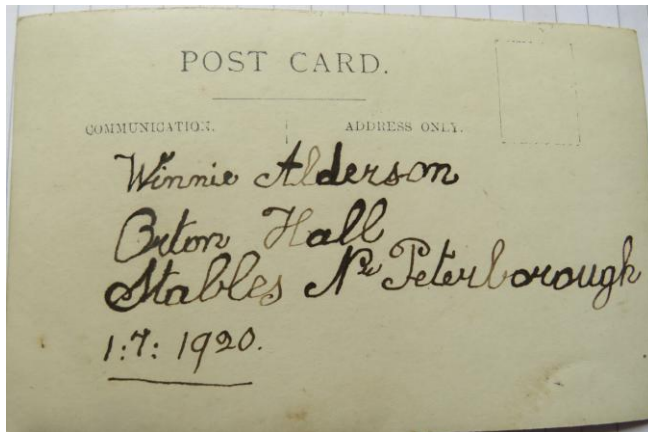 POST CARD.
COMMUNICATION. ADDRESS ONLY.
Winnie Alderson
Orton Hall
Stables Nr Peterborough
1:7: 1920.